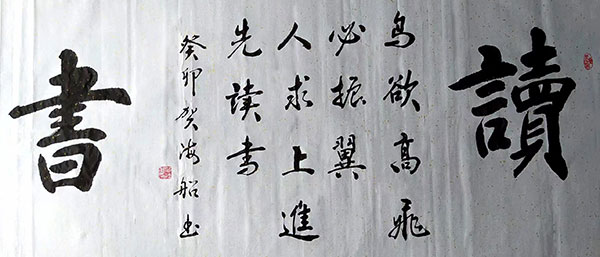 讀
鸟欲高飛
必振翼
人求上進
先读书
癸卯贺海船书
書